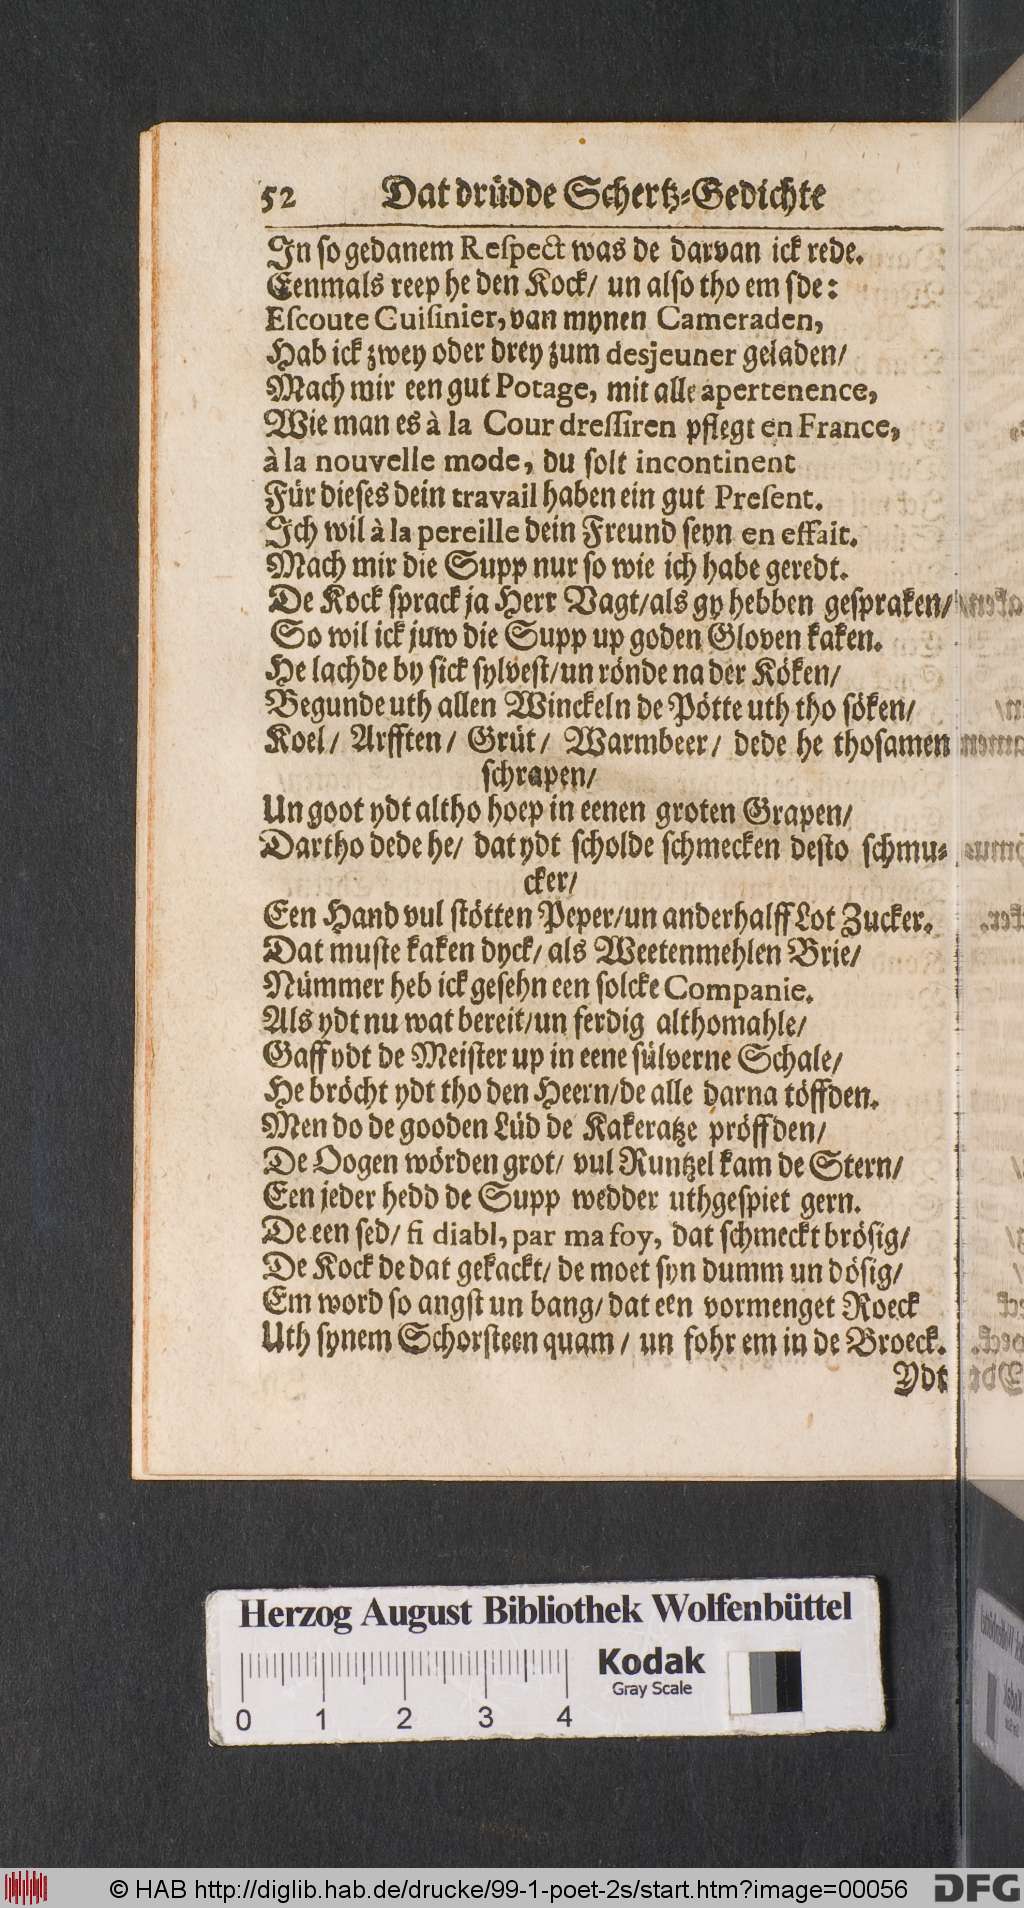 52 Dat drüdde Schertz-Gedichte
In so gedanem Respect was de darvan ick rede.
Eenmals reep he den Kock/ un also tho em sde:
Escoute Cuisinier, van mynen Cameraden,
Hab ick zwey oder drey zum desjeuner geladen/
Mach mir een gut Potage, mit alle apertenence,
Wie man es à la Cour dressiren pflegt en France,
à la nouvelle mode, du solt incontinent
Für dieses dein travail haben ein gut Present.
Ich wil à la pereille dein Freund seyn en effait.
Mach mir die Supp nur so wie ich habe geredt.
De Kock sprack ja Herr Vagt/als gy hebben gespraken/
So wil ick juw die Supp up goden Gloven kaken.
He lachde by sick sylvest/un rönde na der Köken/
Begunde uth allen Winckeln de Pötte uth tho söken/
Koel/ Arfften/ Grüt/ Warmbeer/ dede he thosamen
schrapen/
Un goot ydt altho hoep in eenen groten Grapen/
Dartho dede he/ dat ydt scholde schmecken desto schmu-
cker/
Een Hand vul stötten Peper/un anderhalff Lot Zucker.
Dat muste kaken dyck/ als Weetenmehlen Brie/
Nümmer heb ick gesehn een solcke Companie.
Als ydt nu wat bereit/un ferdig althomahle/
Gaff ydt de Meister up in eene sülverne Schale/
He bröcht ydt tho den Heern/de alle darna töffden.
Men do de gooden Lüd de Kakeratze pröffden/
De Oogen wörden grot/ vul Runtzel kam de Stern/
Een jeder hedd de Supp wedder uthgespiet gern.
De een sed/ fi diabl, par ma foy, dat schmeckt brösig/
De Kock de dat gekackt/ de moet syn dumm un dösig/
Em word so angst un bang/ dat een vormenget Roeck
Uth synem Schorsteen quam/ un fohr em in de Broeck.
Ydt
Herzog August Bibliothek Wolfenbüttel
Kodak
Gray Scale
0 1 2 3 4
© HAB http://diglib.hab.de/drucke/99-1-poet-2s/start.htm?image=00056
DFG